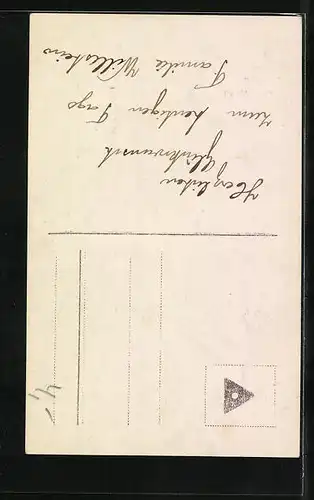 Herzlichen
Glückwunsch
zum heutigen Tage
Familie Willstein
4,-